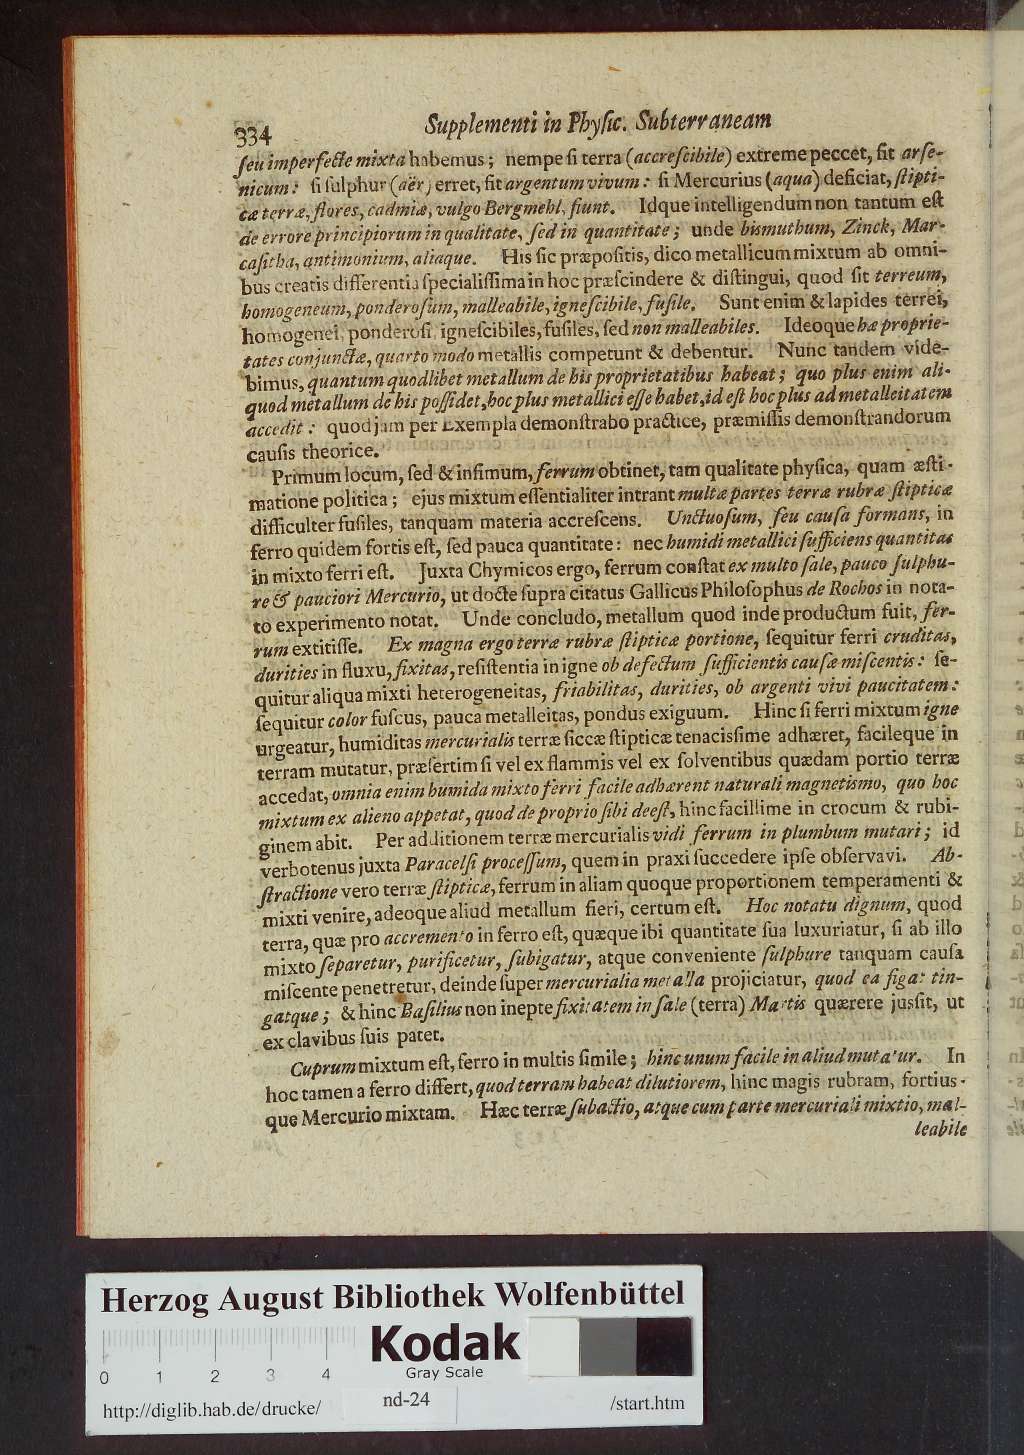 334
Supplementi in Phyſic. Subterraneam
ſeu imperfecte mixta habemus; nempe ſi terra (accreſcibile) extreme peccet, fit arſe-
nicum: ſi ſulphur (aër) erret, fit argentum vivum: ſi Mercurius (aqua) deficiat, ſtipti-
cæ terræ, flores, cadmiæ, vulgo Bergmehl, fiunt. Idque intelligendum non tantum eſt
de errore principiorum in qualitate, ſed in quantitate; unde bismuthum, Zinck, Mar-
caſitha, antimonium, aliaque. His ſic præpoſitis, dico metallicum mixtum ab omni-
bus creatis differentia ſpecialiſſima in hoc præſcindere & diſtingui, quod ſit terreum,
homogeneum, ponderoſum, malleabile, igneſcibile, fuſile. Sunt enim & lapides terrei,
homogenei, ponderoſi, igneſcibiles, fuſiles, ſed non malleabiles. Ideoque hæ proprie-
tates conjunctæ, quarto modo metallis competunt & debentur. Nunc tandem vide-
bimus, quantum quodlibet metallum de his proprietatibus habeat; quo plus enim ali-
quod metallum de his poſſidet, hoc plus metallici eſſe habet, id eſt hoc plus ad metalleitatem
accedit: quod jam per Exempla demonſtrabo practice, præmiſſis demonſtrandorum
cauſis theorice.
Primum locum, ſed & infimum, ferrum obtinet, tam qualitate phyſica, quam æſti-
matione politica; ejus mixtum eſſentialiter intrant multæ partes terræ rubræ ſtipticæ
difficulter fuſiles, tanquam materia accreſcens. Unctuoſum, ſeu cauſa formans, in
ferro quidem fortis eſt, ſed pauca quantitate: nec humidi metallici ſufficiens quantitas
in mixto ferri eſt. Juxta Chymicos ergo, ferrum conſtat ex multo ſale, pauco ſulphu-
re & pauciori Mercurio, ut docte ſupra citatus Gallicus Philoſophus de Rochos in nota-
to experimento notat. Unde concludo, metallum quod inde productum fuit, fer-
rum extitiſſe. Ex magna ergo terræ rubræ ſtipticæ portione, ſequitur ferri cruditas,
durities in fluxu, fixitas, reſiſtentia in igne ob defectum ſufficientis cauſæ miſcentis: ſe-
quitur aliqua mixti heterogeneitas, friabilitas, durities, ob argenti vivi paucitatem:
ſequitur color fuſcus, pauca metalleitas, pondus exiguum. Hinc ſi ferri mixtum igne
urgeatur, humiditas mercurialis terræ ſiccæ ſtipticæ tenaciſſime adhæret, facileque in
terram mutatur, præſertim ſi vel ex flammis vel ex ſolventibus quædam portio terræ
accedat, omnia enim humida mixto ferri facile adhærent naturali magnetismo, quo hoc
mixtum ex alieno appetat, quod de proprio ſibi deeſt, hinc facillime in crocum & rubi-
ginem abit. Per additionem terræ mercurialis vidi ferrum in plumbum mutari; id
verbotenus juxta Paracelſi proceſſum, quem in praxi ſuccedere ipſe obſervavi. Ab-
ſtractione vero terræ ſtipticæ, ferrum in aliam quoque proportionem temperamenti &
mixti venire, adeoque aliud metallum fieri, certum eſt. Hoc notatu dignum, quod
terra, quæ pro accremento in ferro eſt, quæque ibi quantitate ſua luxuriatur, ſi ab illo
mixto ſeparetur, purificetur, ſubigatur, atque conveniente ſulphure tanquam cauſa
miſcente penetretur, deinde ſuper mercurialia metalla projiciatur, quod ea figat tin-
gatque; & hinc Baſilius non inepte fixitatem in ſale (terra) Martis quærere juſſit, ut
ex clavibus ſuis patet.
Cuprum mixtum eſt, ferro in multis ſimile; hinc unum facile in aliud mutatur. In
hoc tamen a ferro differt, quod terram habeat dilutiorem, hinc magis rubram, fortius-
que Mercurio mixtam. Hæc terræ ſubactio, atque cum parte mercuriali mixtio, mal-
leabile
Herzog August Bibliothek Wolfenbüttel
Kodak
Gray Scale
0 1 2 3 4
http://diglib.hab.de/drucke/ nd-24 /start.htm